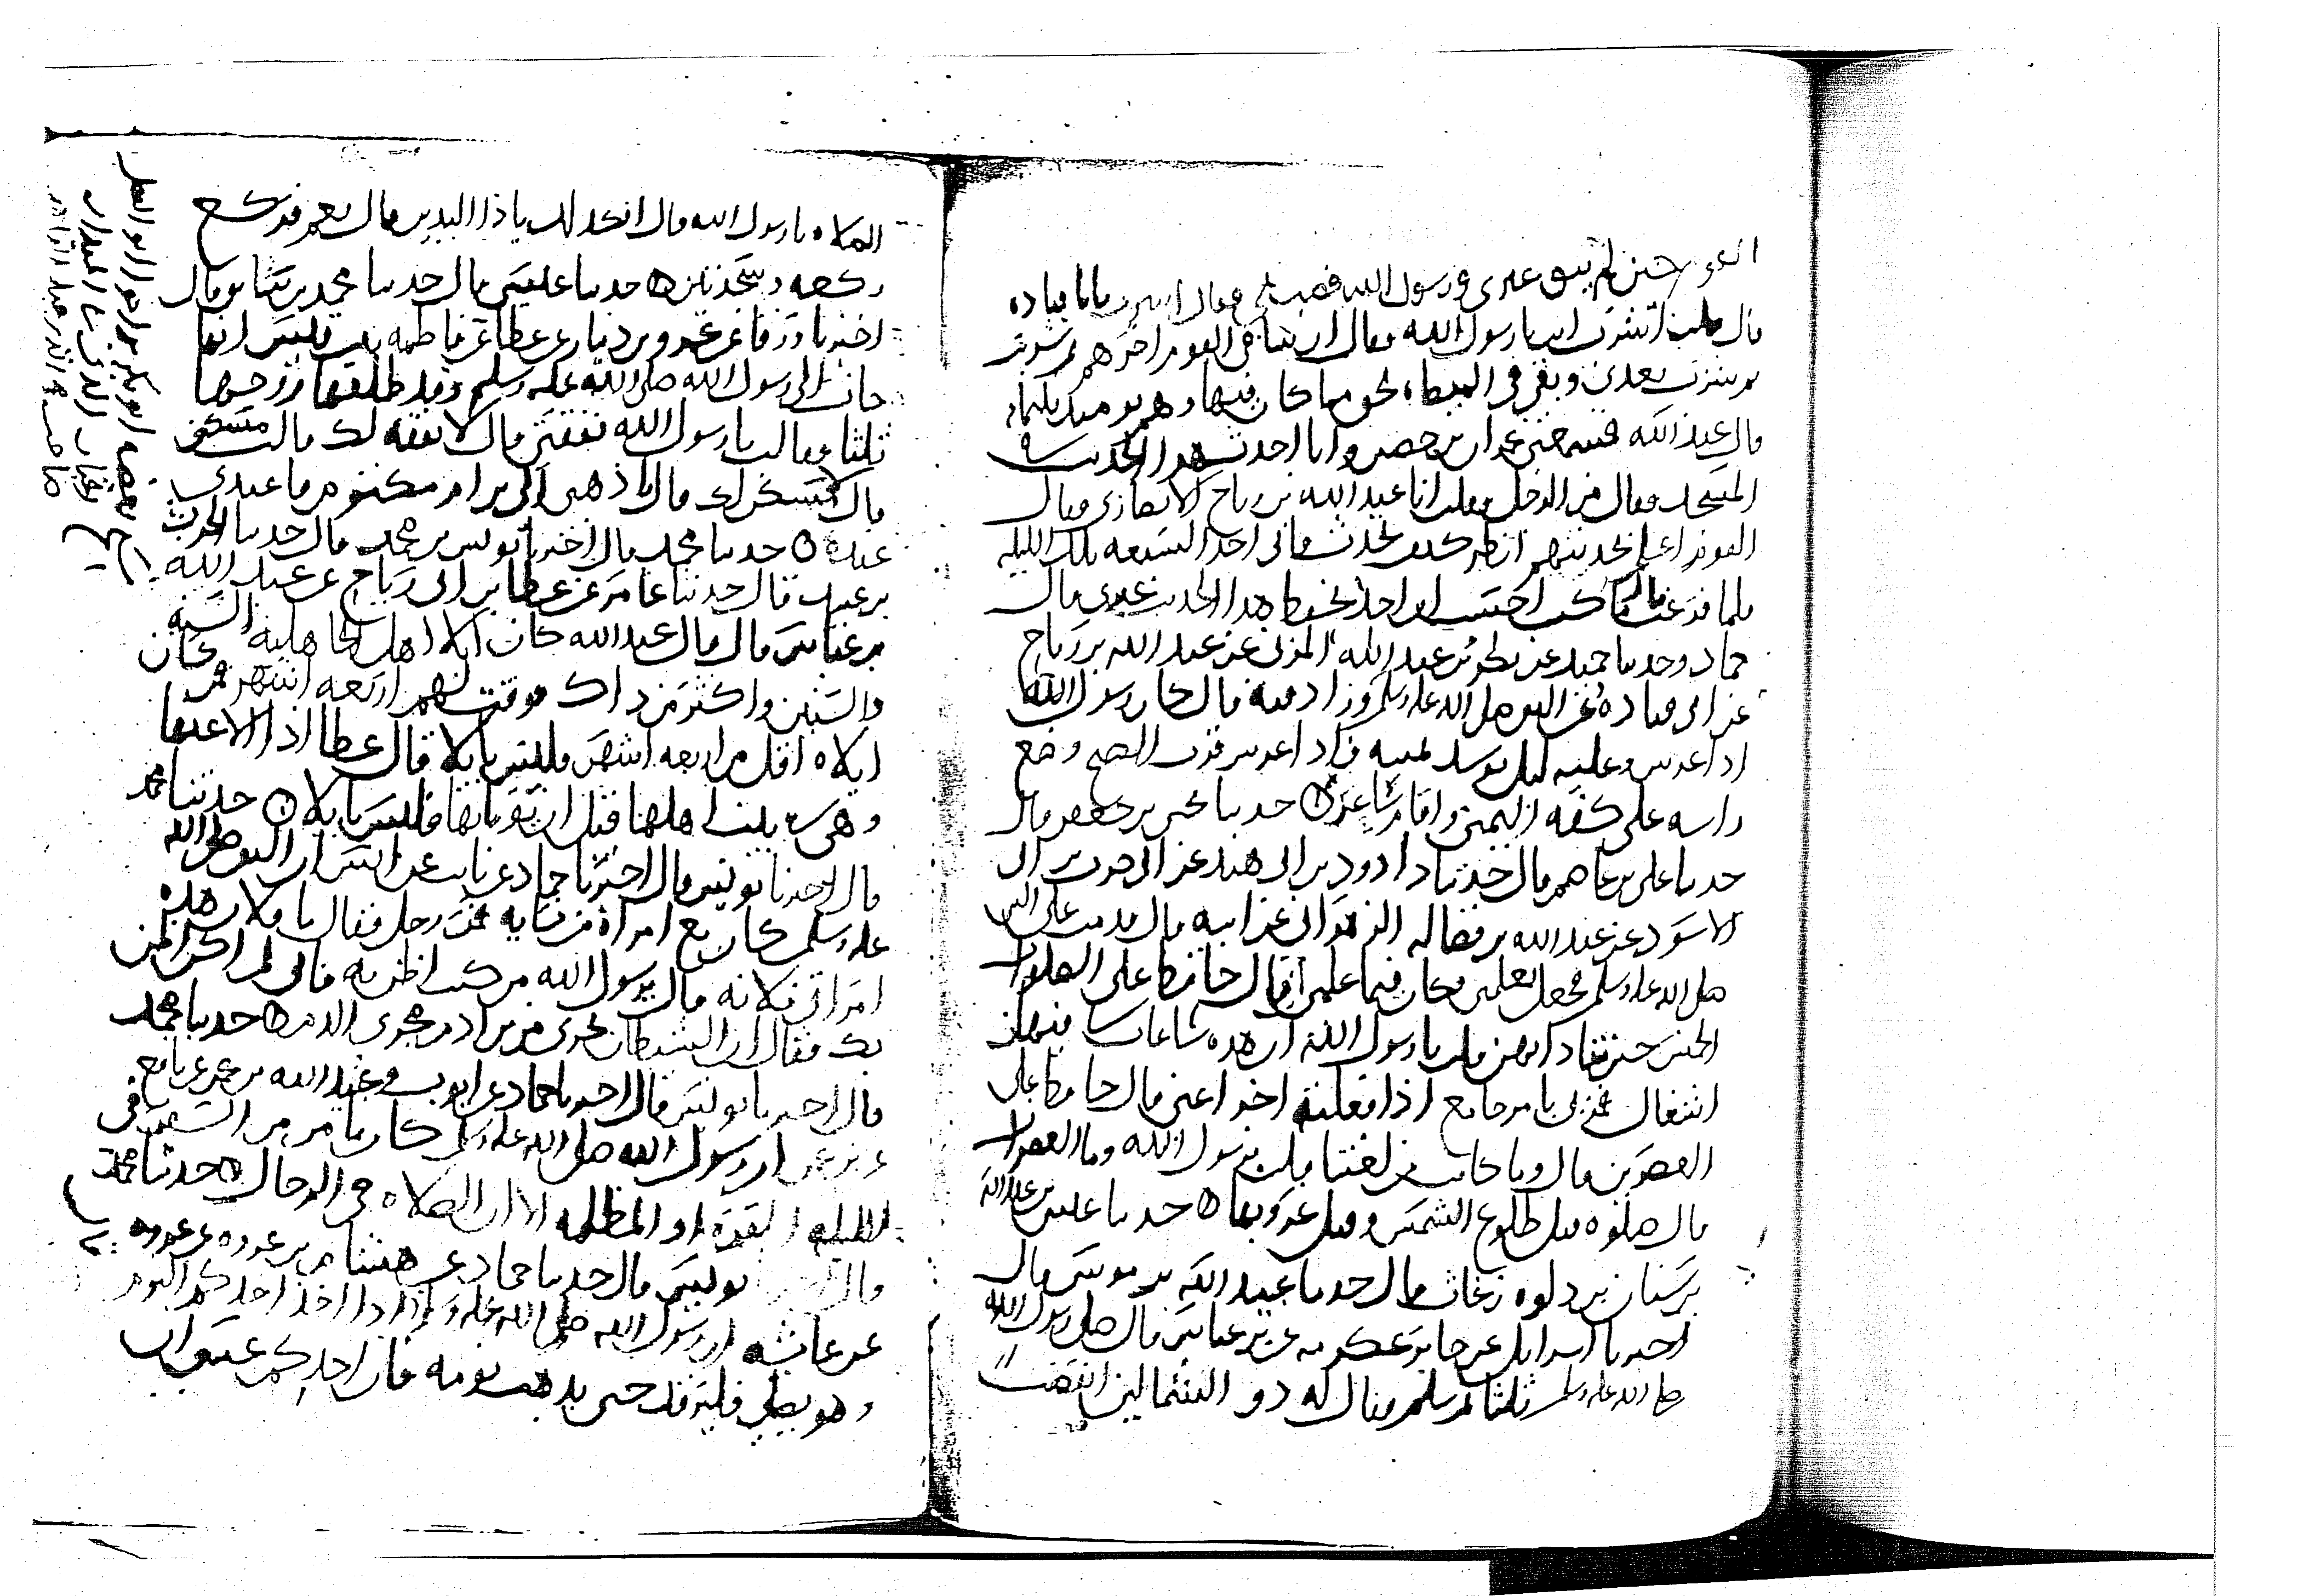 القوم حتى لم يبق غيري ورسول الله فصب لي وقال اشرب يا ابا قتاده
قال قلت اتشرب انت يا رسول الله فقال ان ساقي القوم اخرهم فشربت
ثم شرب بعدي وبقي في الميضاه نحو مما كان فيها وهم يومئذ ثلثمائه
قال عبد الله فسمعني عمران بن حصين وانا احدث هذا الحديث في
المسجد فقال من الرجل فقلت انا عبد الله بن رباح الانصاري فقال
القوم اعلم بحديثهم انظر كيف تحدث فاني احد السبعه تلك الليله
فلما فرغت قال ما كنت احسب ان احدا يحفظ هذا الحديث غيري قال
حماد وحدثنا حميد عن بكر بن عبد الله المزني عن عبد الله بن رباح
عن ابي قتاده عن النبي صلى الله عليه وسلم وزاد فيه قال كان رسول الله
اذا عرس وعليه ليل توسد يمينه واذا عرس قرب الصبح وضع
راسه على كفه اليمنى واقام ساعده حدثنا يحيى بن جعفر قال
حدثنا علي بن عاصم قال حدثنا داود بن ابي هند عن ابي حرب بن ابي
الاسود عن عبد الله بن فضاله الزهراني عن ابيه قال قدمت على النبي
صلى الله عليه وسلم فجعل يعلمني فكان فيما علمني ان قال حافظ على الصلوات
الخمس حين تنادا بهن قلت يا رسول الله ان هذه ساعات لي فيها
اشغال فمرني بامر جامع اذا فعلته اجزا عني قال حافظ على
العصرين قال وما كانت من لغتنا قلت يا رسول الله وما العصران
قال صلوه قبل طلوع الشمس وقبل غروبها حدثنا عيسى بن عبد الله
بن سنان بن دلويه زغاث قال حدثنا عبيد الله بن موسى قال
اخبرنا اسرايل عن جابر عن عكرمه عن بن عباس قال صلى رسول الله
صلى الله عليه وسلم ثلثا ثم سلم فقال له ذو الشمالين انقصت
الصلاه يا رسول الله قال اكذلك يا ذا اليدين قال نعم فركع
ركعه وسجدتين حدثنا عيسى قال حدثنا محمد بن سابق قال
اخبرنا ورقا عن عمرو بن دينار عن عطا عن فاطمه بنت قيس انها
جات الى رسول الله صلى الله عليه وسلم وقد طلقها زوجها
ثلثا فقالت يا رسول الله نفقتي قال لا نفقه لك قالت مسكني
قال لا مسكن لك قال اذهبي الى بن ام مكتوم ما عندي
عنده حدثنا محمد قال اخبرنا يونس بن محمد قال حدثنا الحرث
بن عبيد قال حدثنا عامر عن عطا بن ابي رباح عن عبد الله
بن عباس قال قال عبد الله كان ايلا اهل الجاهليه السنه
والسنتين واكثر من ذلك فوقت لهم اربعه اشهر فمن كان
ايلاه اقل من اربعه اشهر فليس بايلا قال عطا اذا الا عنها
وهي في بيت اهلها قبل ان يوتا بها فليس بايلا حدثنا محمد
قال اخبرنا يونس قال اخبرنا حماد عن ثابت عن انس ان النبي صلى الله
عليه وسلم كان مع امراه من نسايه فمر رجل فقال يا فلان هذه
امراتي فلانه قال يرسول الله من كنت اظن به فاني لم اكن اظن
بك فقال ان الشيطان يجري من بن ادم مجرى الدم حدثنا محمد
قال اخبرنا يونس قال اخبرنا حماد عن ايوب وعبيد الله بن عمر عن نافع
عن بن عمر ان رسول الله صلى الله عليه وسلم كان يامر من السفر في
الليله القره او المظلمه الا ان الصلاه في الرحال حدثنا محمد
قال يونس قال حدثنا حماد عن هشام بن عروه عن عروه
عن عائشه ان رسول الله صلى الله عليه وسلم قال اذا اخذ احدكم النوم
وهو يصلي فليرقد حتى يذهب نومه فان احدكم عسى ان